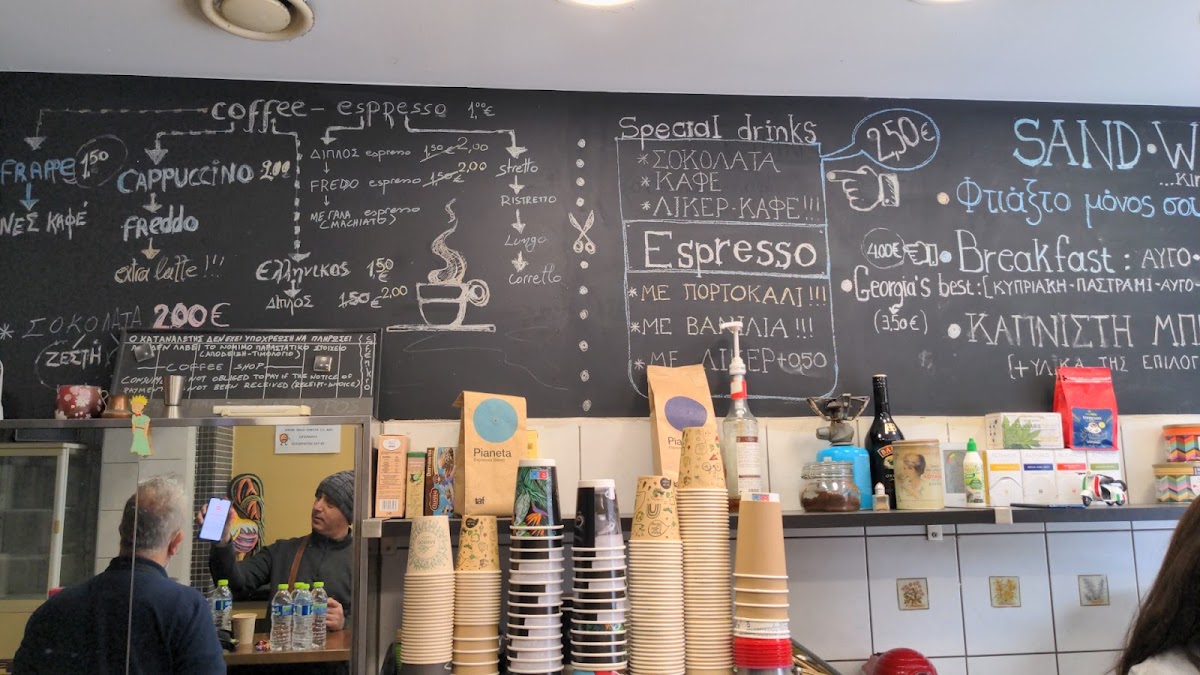 coffee - espresso 1.00€
FRAPPE 1.50
ΝΕΣ ΚΑΦΕ
CAPPUCCINO 2.00
freddo
extra latte!!!
Ελληνικος 1.50€
Διπλος 1.50€ 2.00
* ΣΟΚΟΛΑΤΑ 2.00€
ΖΕΣΤΗ
ΔΙΠΛΟΣ espresso 1.50€ 2,00
FREDDO espresso 1.50€ 2.00
ΜΕ ΓΑΛΑ espresso
(MACHIATO)
Stretto
RISTRETTO
Lungo
Corretto
Special drinks
2,50€
* ΣΟΚΟΛΑΤΑ
* ΚΑΦΕ
* ΛΙΚΕΡ-ΚΑΦΕ!!!
Espresso
* ΜΕ ΠΟΡΤΟΚΑΛΙ!!!
* ΜΕ ΒΑΝΙΛΙΑ!!!
* ΜΕ ΛΙΚΕΡ+050
SAND·W
Φτιάξτο μόνος σου
4.00€
Breakfast: ΑΥΓΟ
Georgia's best:[ΚΥΠΡΙΑΚΗ-ΠΑΣΤΡΑΜΙ-ΑΥΓΟ
(3,50€)
ΚΑΠΝΙΣΤΗ ΜΠ
[+ΥΛΙΚΑ ΤΗΣ ΕΠΙΛΟΓ
Ο ΚΑΤΑΝΑΛΩΤΗΣ ΔΕΝ ΕΧΕΙ ΥΠΟΧΡΕΩΣΗ ΝΑ ΠΛΗΡΩΣΕΙ
ΛΑΒΕΙ ΤΟ ΝΟΜΙΜΟ ΠΑΡΑΣΤΑΤΙΚΟ ΣΤΟΙΧΕΙΟ
(ΑΠΟΔΕΙΞΗ-ΤΙΜΟΛΟΓΙΟ)
COFFEE SHOP
NOT OBLIGED TO PAY IF THE NOTICE OF
PAYMENT NOT BEEN RECEIVED (RECEIPT-INVOICE)
Pianeta
taf
Pianeta